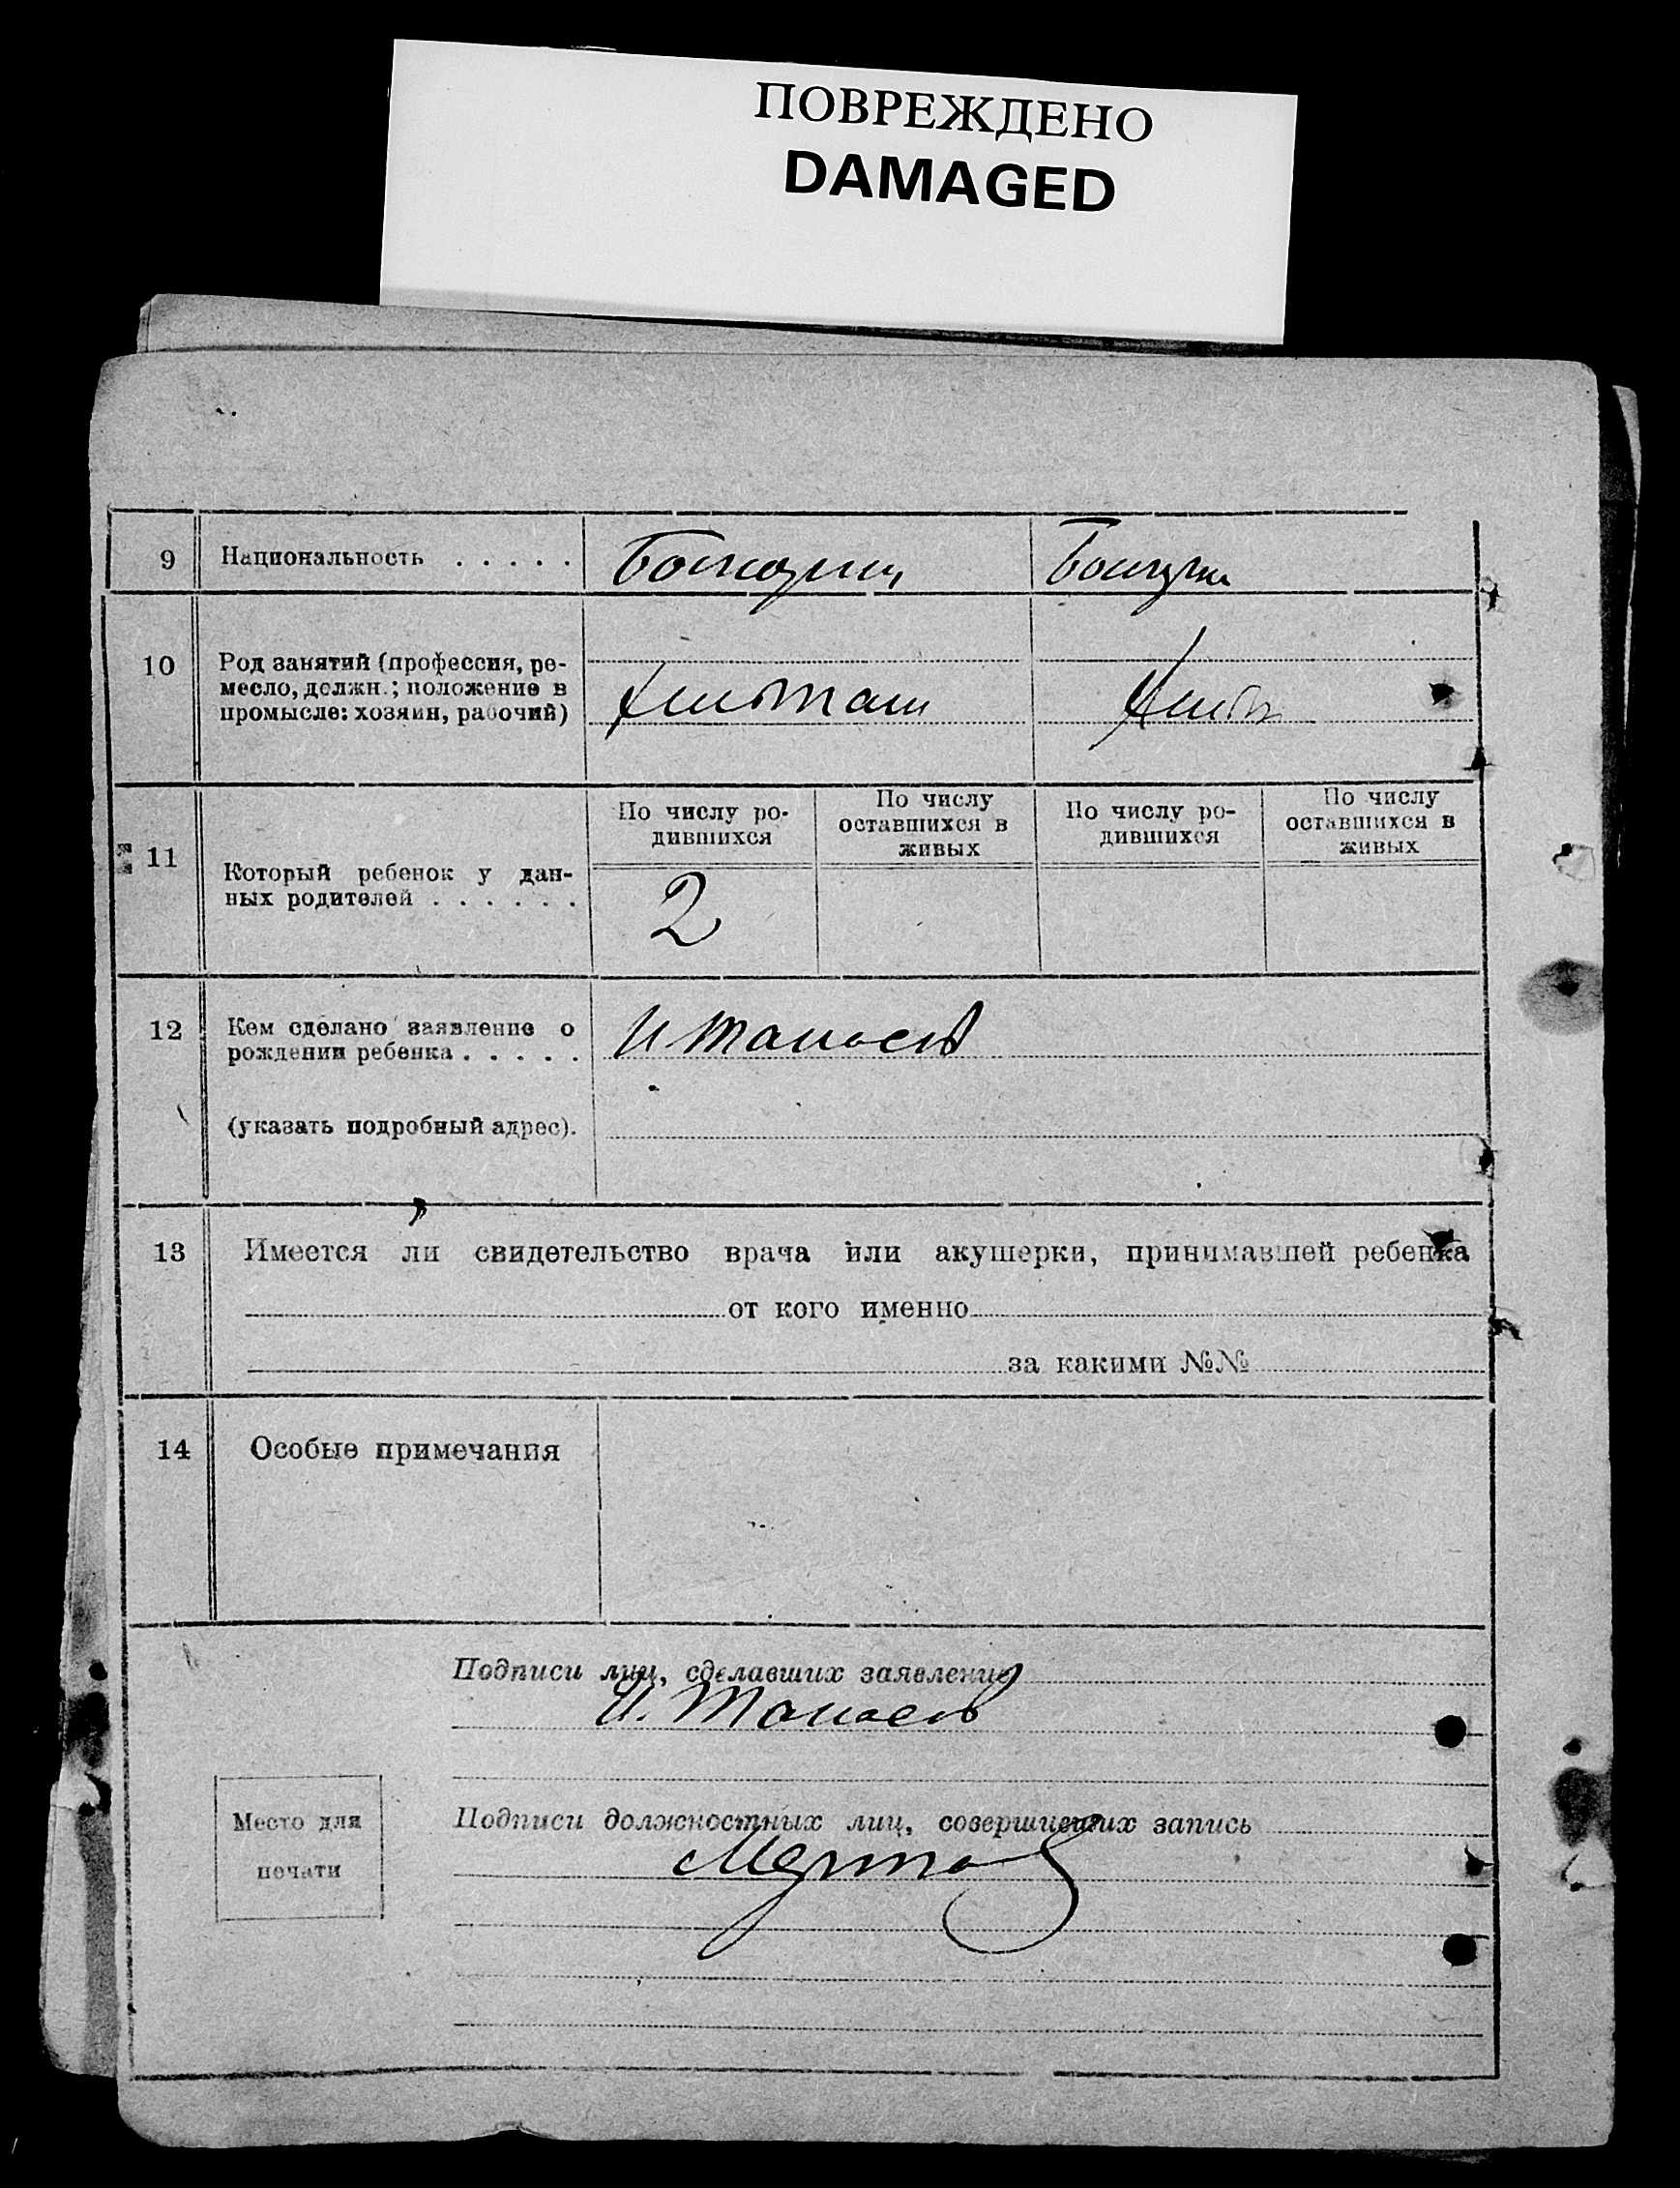 ПОВРЕЖДЕНО
DAMAGED
9 Национальность . . . . .
10 Род занятий (профессия, ре-
месло, должн.; положение в
промысле: хозяин, рабочий)
По числу ро-
дившихся
По числу
оставшихся в
живых
По числу ро-
дившихся
По числу
оставшихся в
живых
11 Который ребенок у дан-
ных родителей . . . . . .
2
12 Кем сделано заявление о
рождении ребенка . . . . .
(указать подробный адрес).
13 Имеется ли свидетельство врача или акушерки, принимавшей ребенка
от кого именно
за какими №№
14 Особые примечания
Подписи лиц, сделавших заявление
Место для
печати
Подписи должностных лиц, совершивших запись